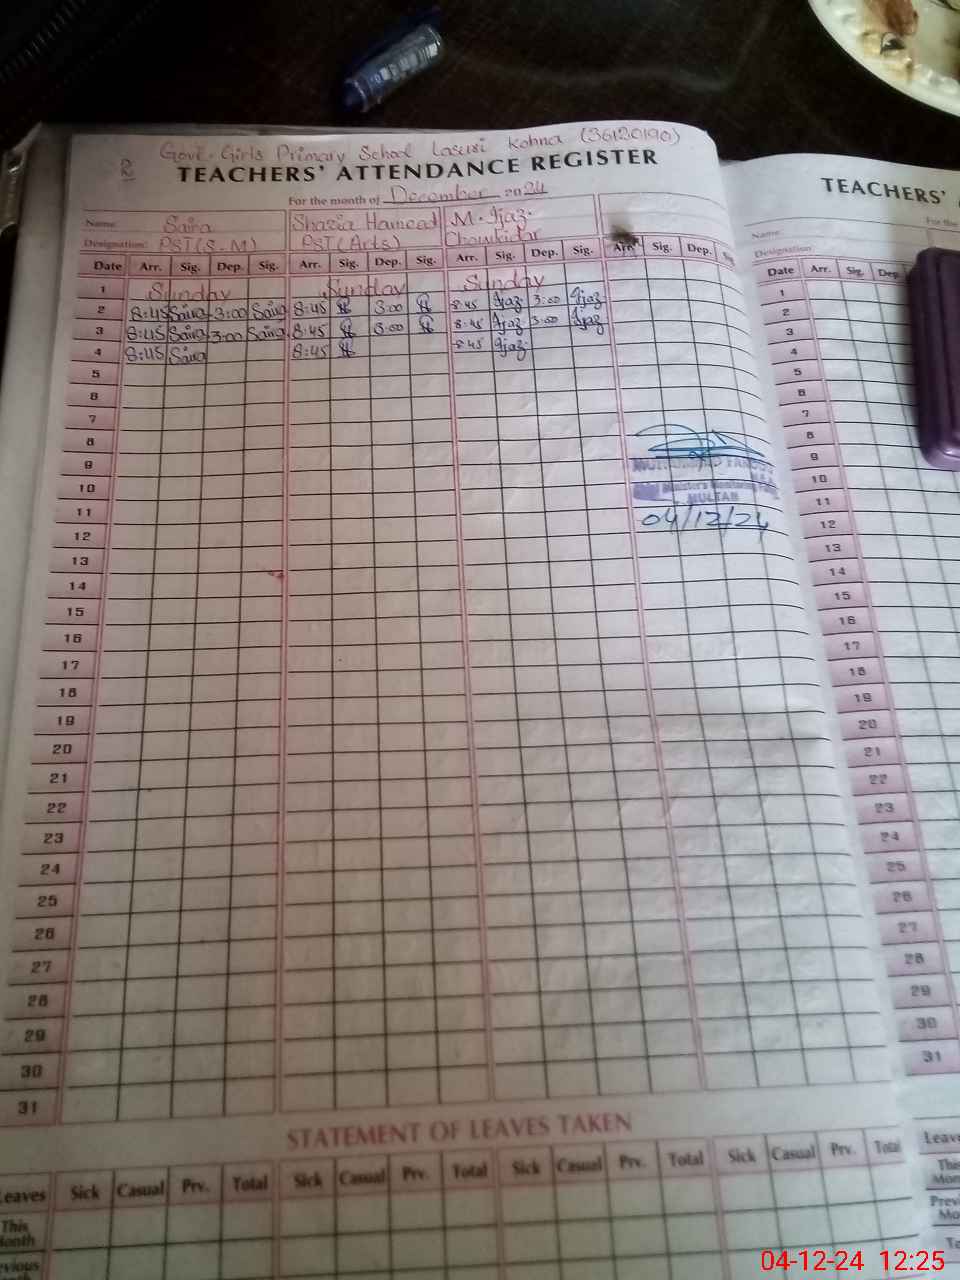 Govt. Girls Primary School Lasuri Kohna (36120190)
TEACHERS' ATTENDANCE REGISTER
For the month of December 2024
Name Saira Shazia Hameed M. Ijaz.
Designation: PST(S.M) PST(Arts) Chowkidar
Date Arr. Sig. Dep. Sig. Arr. Sig. Dep. Sig. Arr. Sig. Dep. Sig. Arr. Sig. Dep. Sig.
1 Sunday Sunday Sunday
2 8:45 Saira 3:00 Saira 8:45 3:00 8:45 Ijaz 3:00 Ijaz
3 8:45 Saira 3:00 Saira 8:45 3:00 8:45 Ijaz 3:00 Ijaz
4 8:45 Saira 8:45 8:45 Ijaz
5
6
7
8
9
10
11
12
13
14
15
16
17
18
19
20
21
22
23
24
25
26
27
28
29
30
31
MUHAMMAD
MULTAN
04/12/24
STATEMENT OF LEAVES TAKEN
Leaves Sick Casual Prv. Total Sick Casual Prv. Total Sick Casual Prv. Total Sick Casual Prv. Total
This
Month
TEACHERS'
For the
Name
Designation
Date Arr. Sig. Dep.
1
2
3
4
5
6
7
8
9
10
11
12
13
14
15
16
17
18
19
20
21
22
23
24
25
26
27
28
29
30
31
Leave
This
04-12-24 12:25